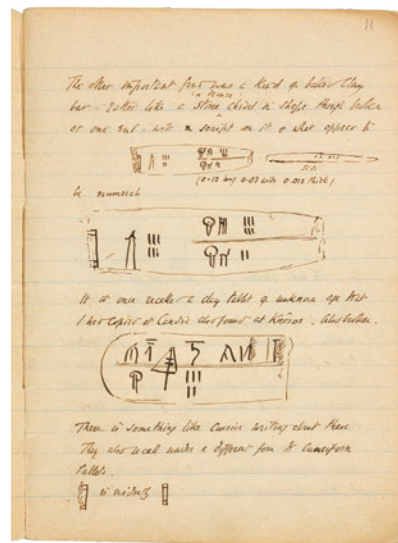 11
The other important find was a kind of baked clay
bar rather like a stone chisel in shape though broken
at one end with script on it & what appear to
be numerals
It at once recalled a clay tablet of unknown age that
I had copied at Candia also found at Knôsos. Also broken.
There is something like cursive writing about these
They also recall under a different form the cuneiform
tablets.
is evidently